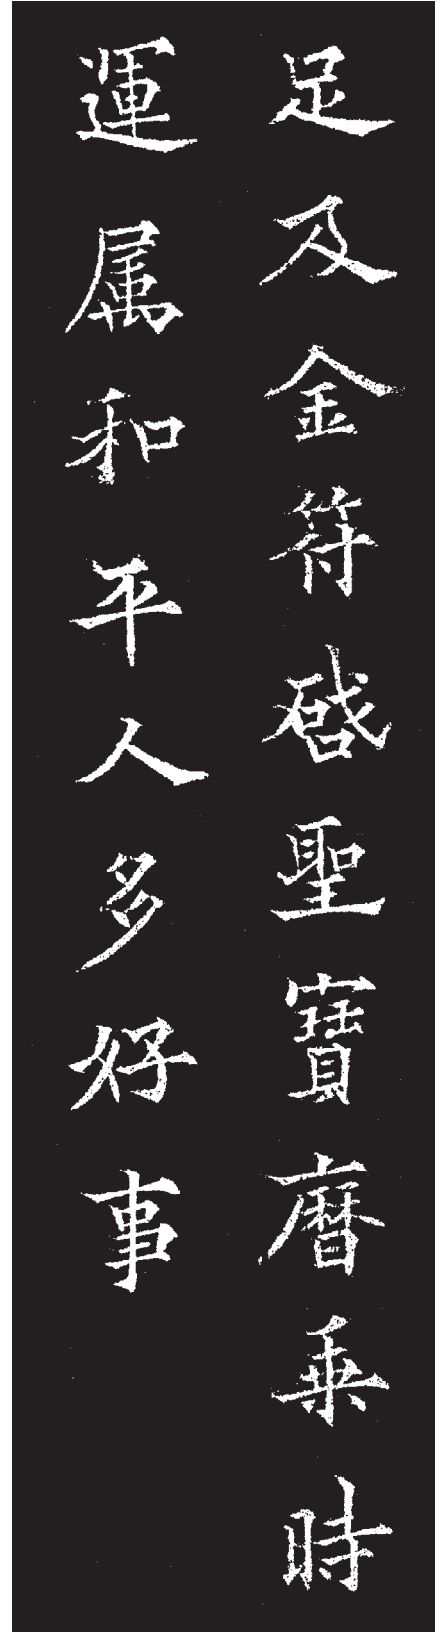 足及金符啓聖寶曆乗時
運属和平人多好事